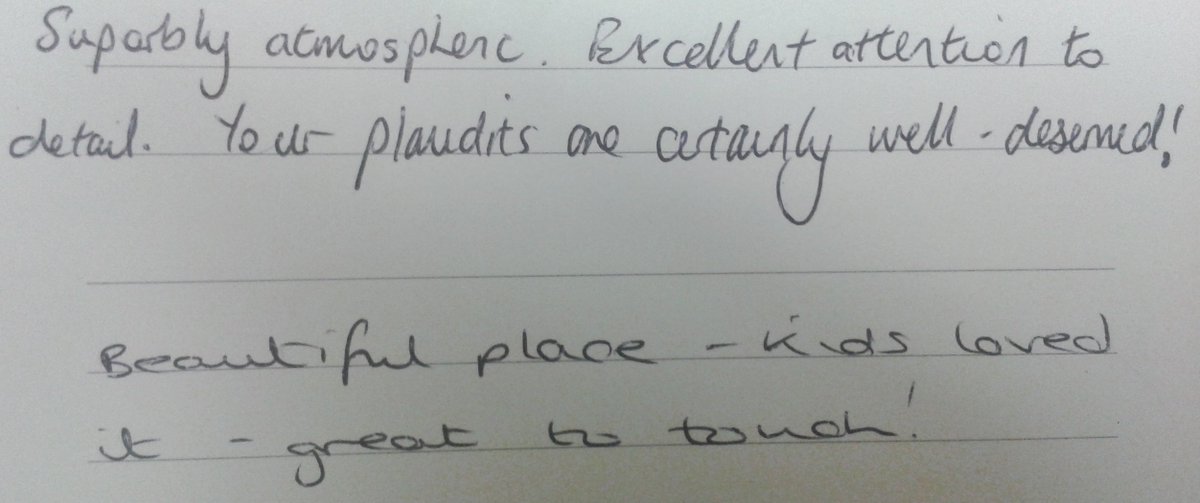 Superbly atmospheric. Excellent attention to
detail. Your plaudits are certainly well-deserved!
Beautiful place - kids loved
it - great to touch!